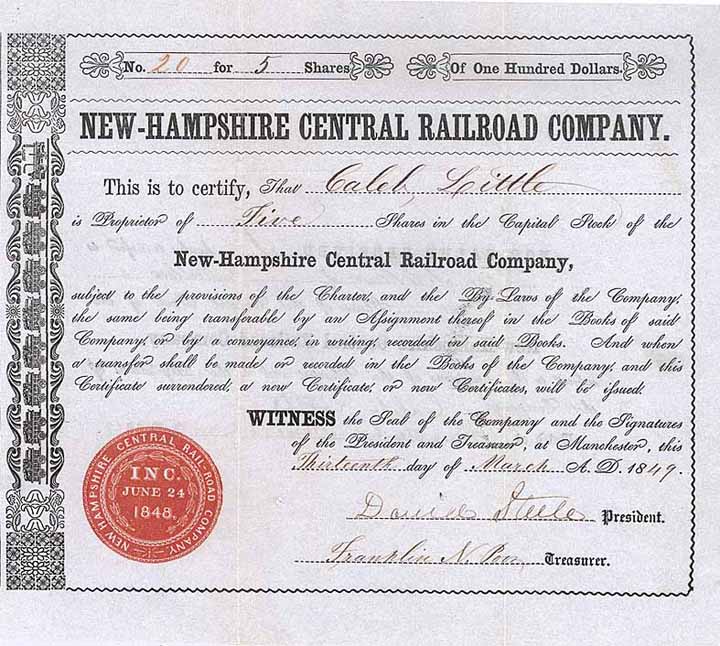 No. 20 for 5 Shares Of One Hundred Dollars.
NEW-HAMPSHIRE CENTRAL RAILROAD COMPANY.
This is to certify, That Caleb Little
is Proprietor of Five Shares in the Capital Stock of the
New-Hampshire Central Railroad Company,
subject to the provisions of the Charter, and the By-Laws of the Company,
the same being transferable by an Assignment thereof in the Books of said
Company, or by a conveyance, in writing, recorded in said Books. And when
a transfer shall be made or recorded in the Books of the Company, and this
Certificate surrendered, a new Certificate, or new Certificates, will be issued.
WITNESS the Seal of the Company and the Signatures
of the President and Treasurer, at Manchester, this
Thirteenth day of March A. D. 1849.
David Steele President.
Franklin N. Treasurer.
NEW HAMPSHIRE CENTRAL RAIL-ROAD COMPANY
INC.
JUNE 24
1848.